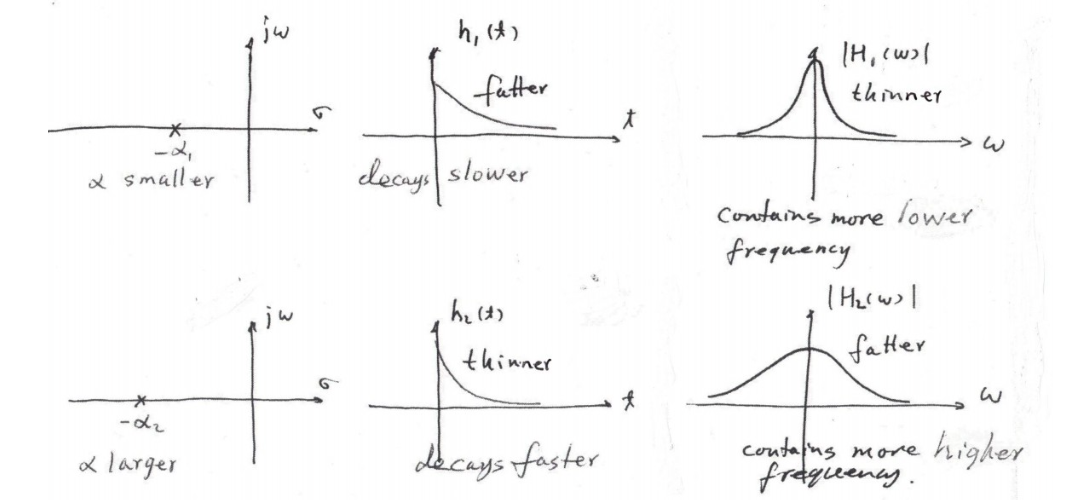 jω
σ
-α₁
α smaller
h₁(t)
fatter
t
decays slower
|H₁(ω)|
thinner
ω
contains more lower
frequency
jω
σ
-α₂
α larger
h₂(t)
thinner
t
decays faster
|H₂(ω)|
fatter
ω
contains more higher
frequency.